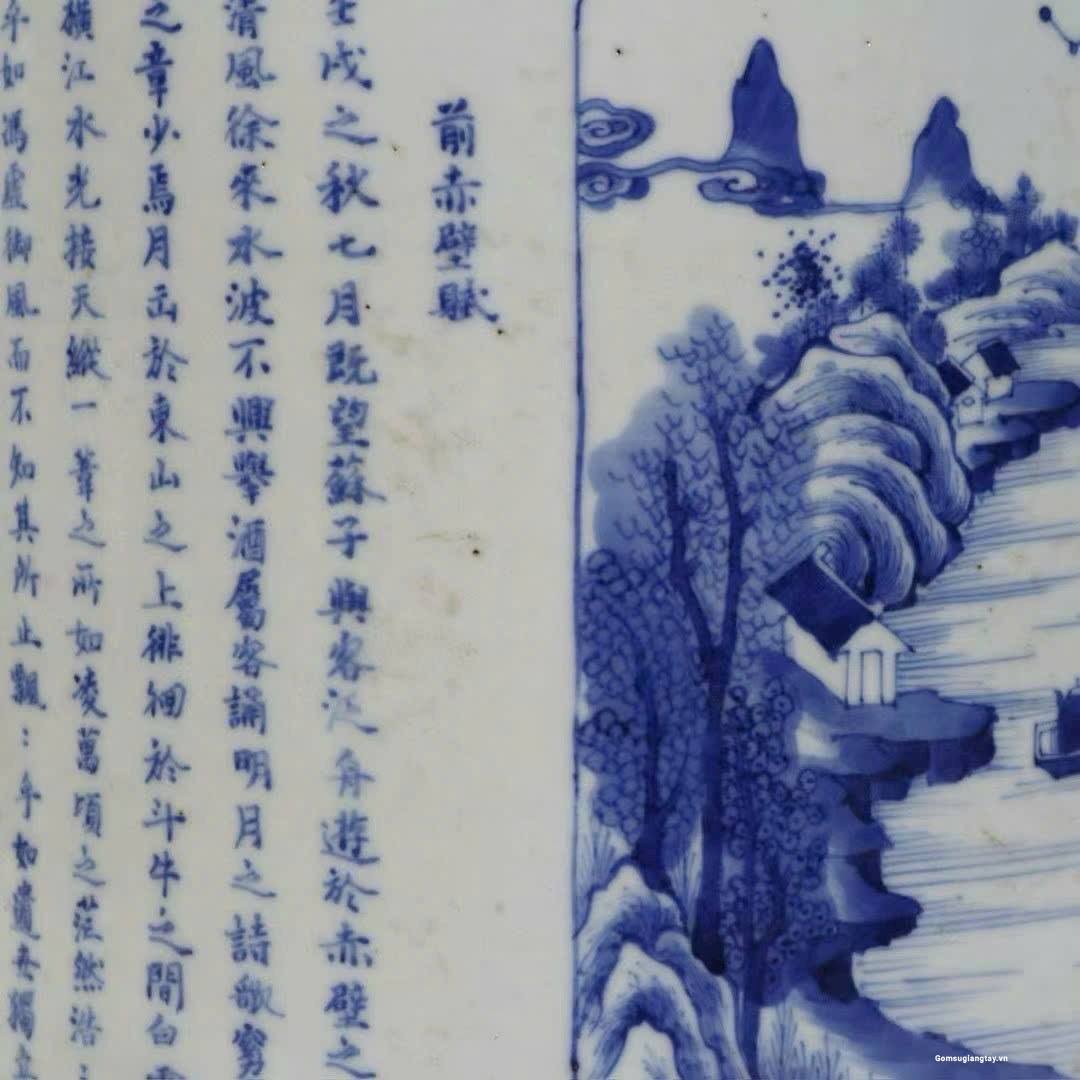 前赤壁賦
壬戌之秋七月既望蘇子與客泛舟遊於赤壁之
清風徐來水波不興舉酒屬客誦明月之詩歌窈
之章少焉月出於東山之上徘徊於斗牛之間白
橫江水光接天縱一葦之所如凌萬頃之茫然浩:
乎如馮虛御風而不知其所止飄:乎如遺世獨立
Gomsugiangtay.vn